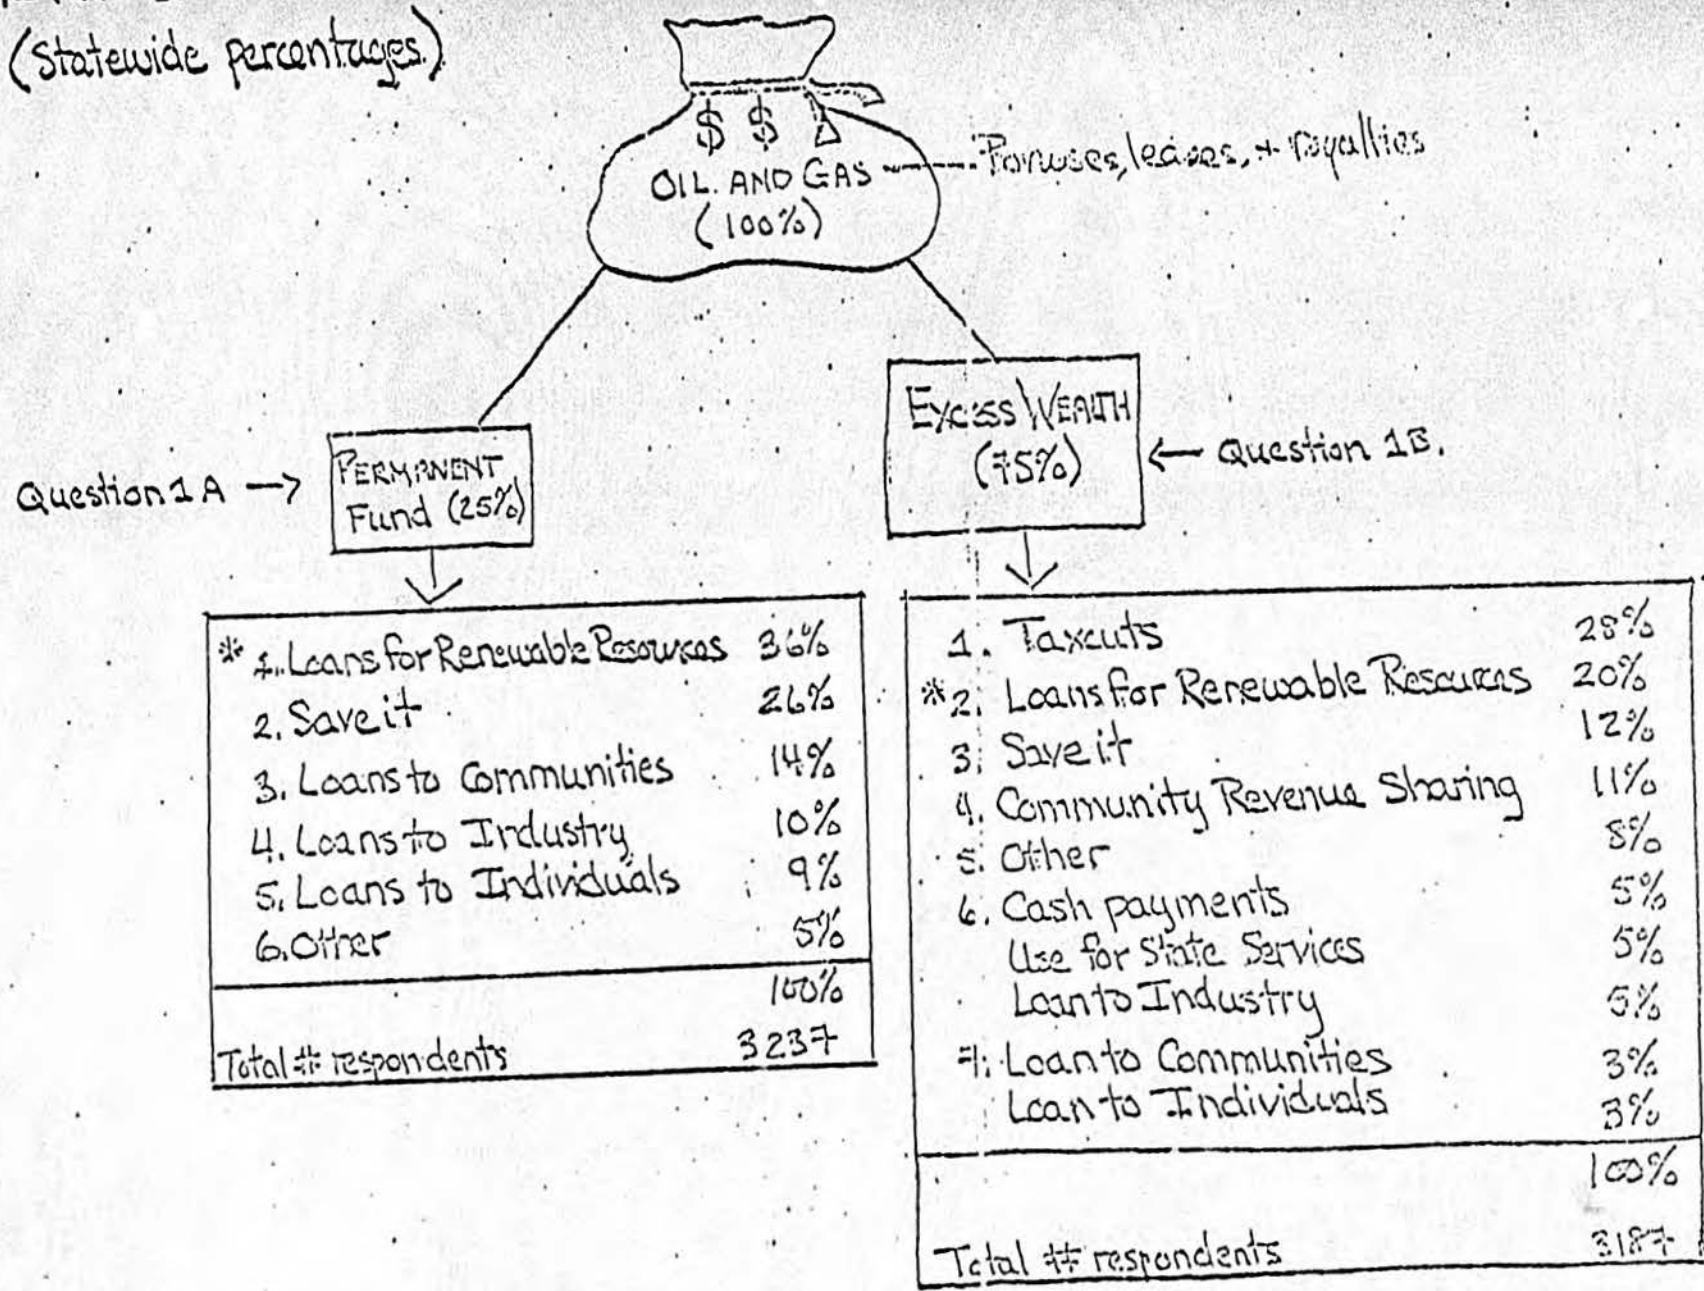 (Statewide percentages.)
$ $
OIL AND GAS
(100%)
Bonuses, leases, + royalties
Question 1A →
PERMANENT
Fund (25%)
EXCESS WEALTH
(75%)
← Question 1B.
* 1. Loans for Renewable Resources 36%
2. Save it 26%
3. Loans to Communities 14%
4. Loans to Industry 10%
5. Loans to Individuals 9%
6. Other 5%
100%
Total # respondents 3237
1. Taxcuts 28%
*2. Loans for Renewable Resources 20%
3. Save it 12%
4. Community Revenue Sharing 11%
5. Other 8%
6. Cash payments 5%
Use for State Services 5%
Loan to Industry 5%
7. Loan to Communities 3%
Loan to Individuals 3%
100%
Total # respondents 3187